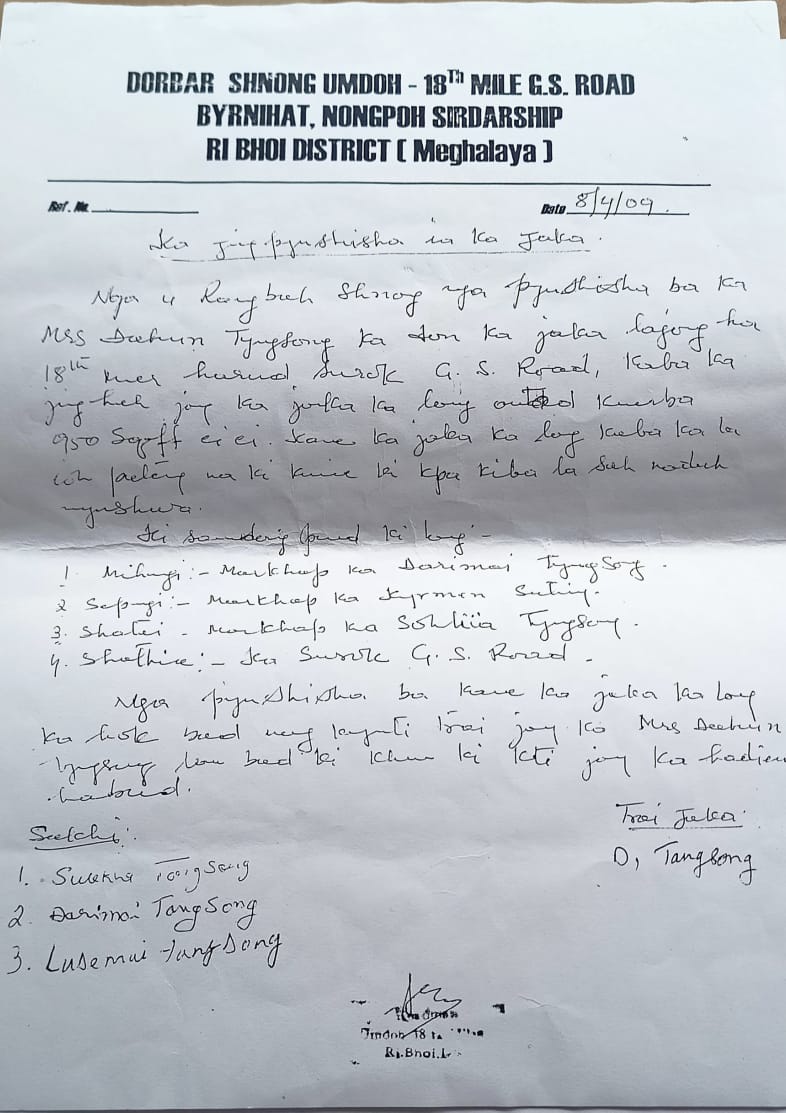 DORBAR SHNONG UMDOH - 18Th MILE G.S. ROAD
BYRNIHAT, NONGPOH SIRDARSHIP
RI BHOI DISTRICT ( Meghalaya )
Ref. No.
Date 8/4/09.
Ka jingpynshisha ia ka Jaka.
Nga u Rangbah Shnong nga pynshisha ba ka
Mrss Deehun Tyngsong ka don ka jaka lajong ha
18th mer harud Surok G. S. Road, kaba ka
jingheh jong ka jaka ka long
950 Sqft ei ei. Kane ka jaka ka long kaba ka la
ioh na ki kmie ki kpa kiba la sah naduh
mynshwa.
Ki pud ki long:-
1 Mihngi:- Markhap ka Darimai Tyngsong.
2 Sepngi:- Markhap ka Kyrmen
3. Shatei - Markhap ka Tyngsong.
4. Shathie:- Ka Surok G. S. Road.
Nga pynshisha ba kane ka jaka ka long
ka hok bad trai jong ka Mrs Deehun
Tyngsong bad ki khun ki kti jong ka hadien
habud.
Sakhi:
Trai Jaka
D, Tangsong
1. Tongsong
2. Darimai TangSong
3. Lusemai tangsong
18
Ri.Bhoi.